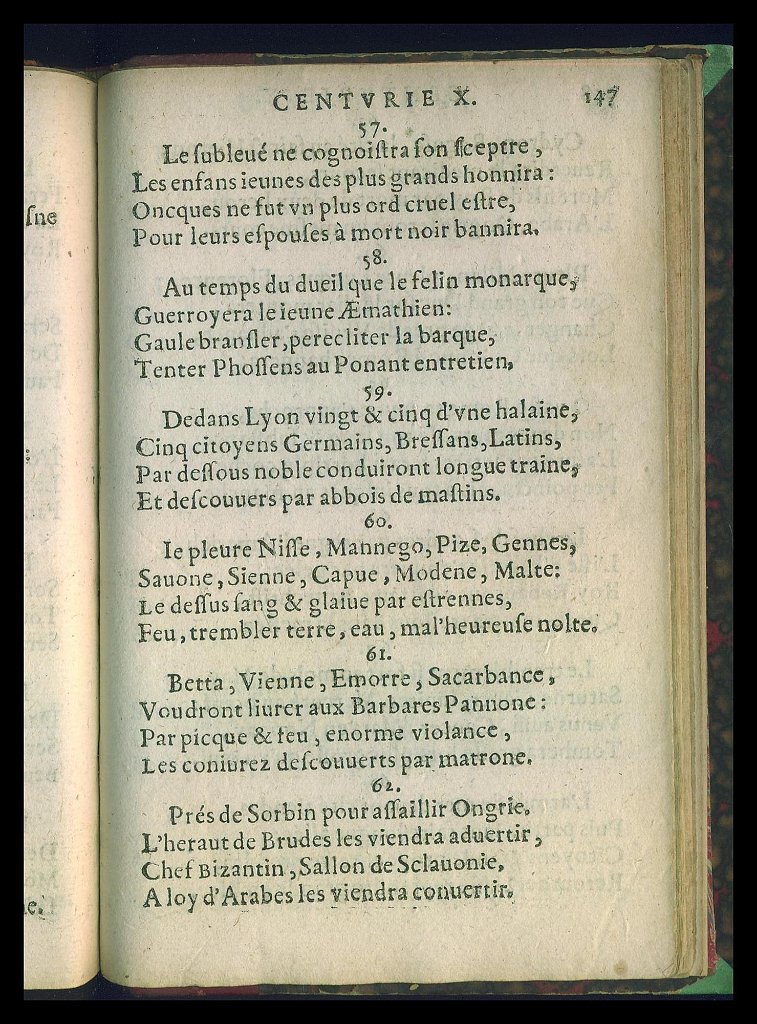 CENTVRIE X. 147
57.
Le ſubleué ne cognoiſtra ſon ſceptre,
Les enfans ieunes des plus grands honnira:
Oncques ne fut vn plus ord cruel eſtre,
Pour leurs eſpouſes à mort noir bannira.
58.
Au temps du dueil que le felin monarque,
Guerroyera le ieune Æmathien:
Gaule branſler, perecliter la barque,
Tenter Phoſſens au Ponant entretien.
59.
Dedans Lyon vingt & cinq d'vne halaine,
Cinq citoyens Germains, Breſſans, Latins,
Par deſſous noble conduiront longue traine,
Et deſcouuers par abbois de maſtins.
60.
Ie pleure Niſſe, Mannego, Pize, Gennes,
Sauone, Sienne, Capue, Modene, Malte:
Le deſſus ſang & glaiue par eſtrennes,
Feu, trembler terre, eau, mal'heureuſe nolte.
61.
Betta, Vienne, Emorre, Sacarbance,
Voudront liurer aux Barbares Pannone:
Par picque & feu, enorme violance,
Les coniurez deſcouuerts par matrone.
62.
Prés de Sorbin pour aſſaillir Ongrie.
L'heraut de Brudes les viendra aduertir,
Chef Bizantin, Sallon de Sclauonie,
A loy d'Arabes les viendra conuertir.
ſne